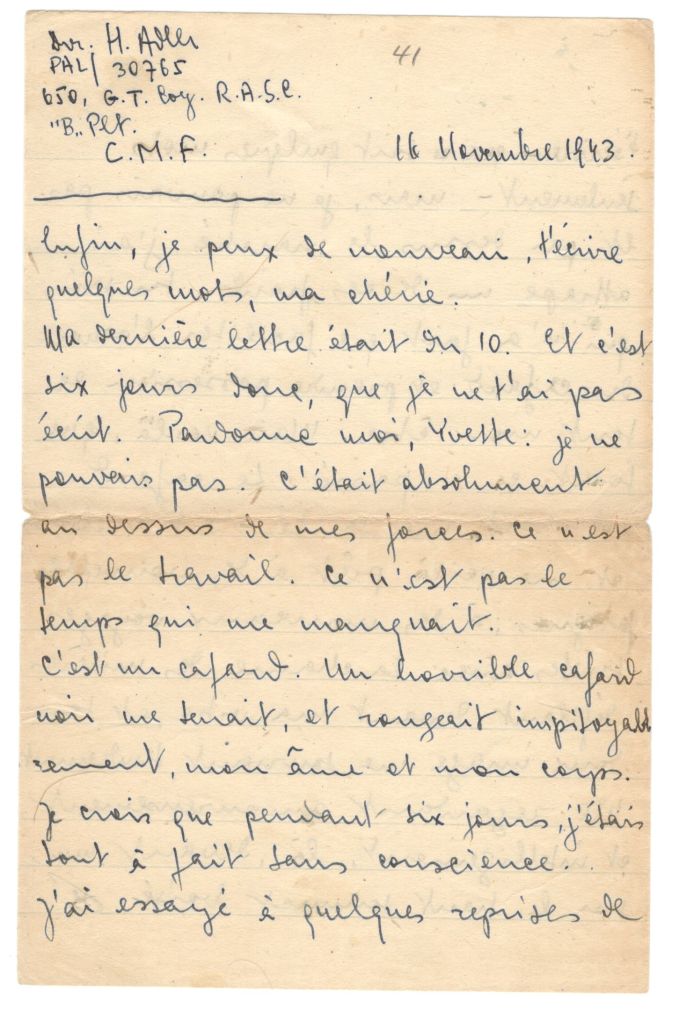 Dvr. H. Adler
41
PAL/ 30765
650, G.T. Coy. R.A.S.C.
"B„ Plt.
C.M.F.
16 Novembre 1943.
Enfin, je peux de nouveau, t'écrire
quelques mots, ma chérie.
Ma dernière lettre était du 10. Et c'est
six jours donc, que je ne t'ai pas
écrit. Pardonne moi, Yvette: je ne
pouvais pas. C'était absolument
au dessus de mes forces. Ce n'est
pas le travail. Ce n'est pas le
temps qui me manquait.
C'est un cafard. Un horrible cafard
noir me tenait, et rongeait impitoyabl
ement, mon âme et mon corps.
Je crois que pendant six jours, j'étais
tout à fait sans conscience.
J'ai essayé à quelques reprises de